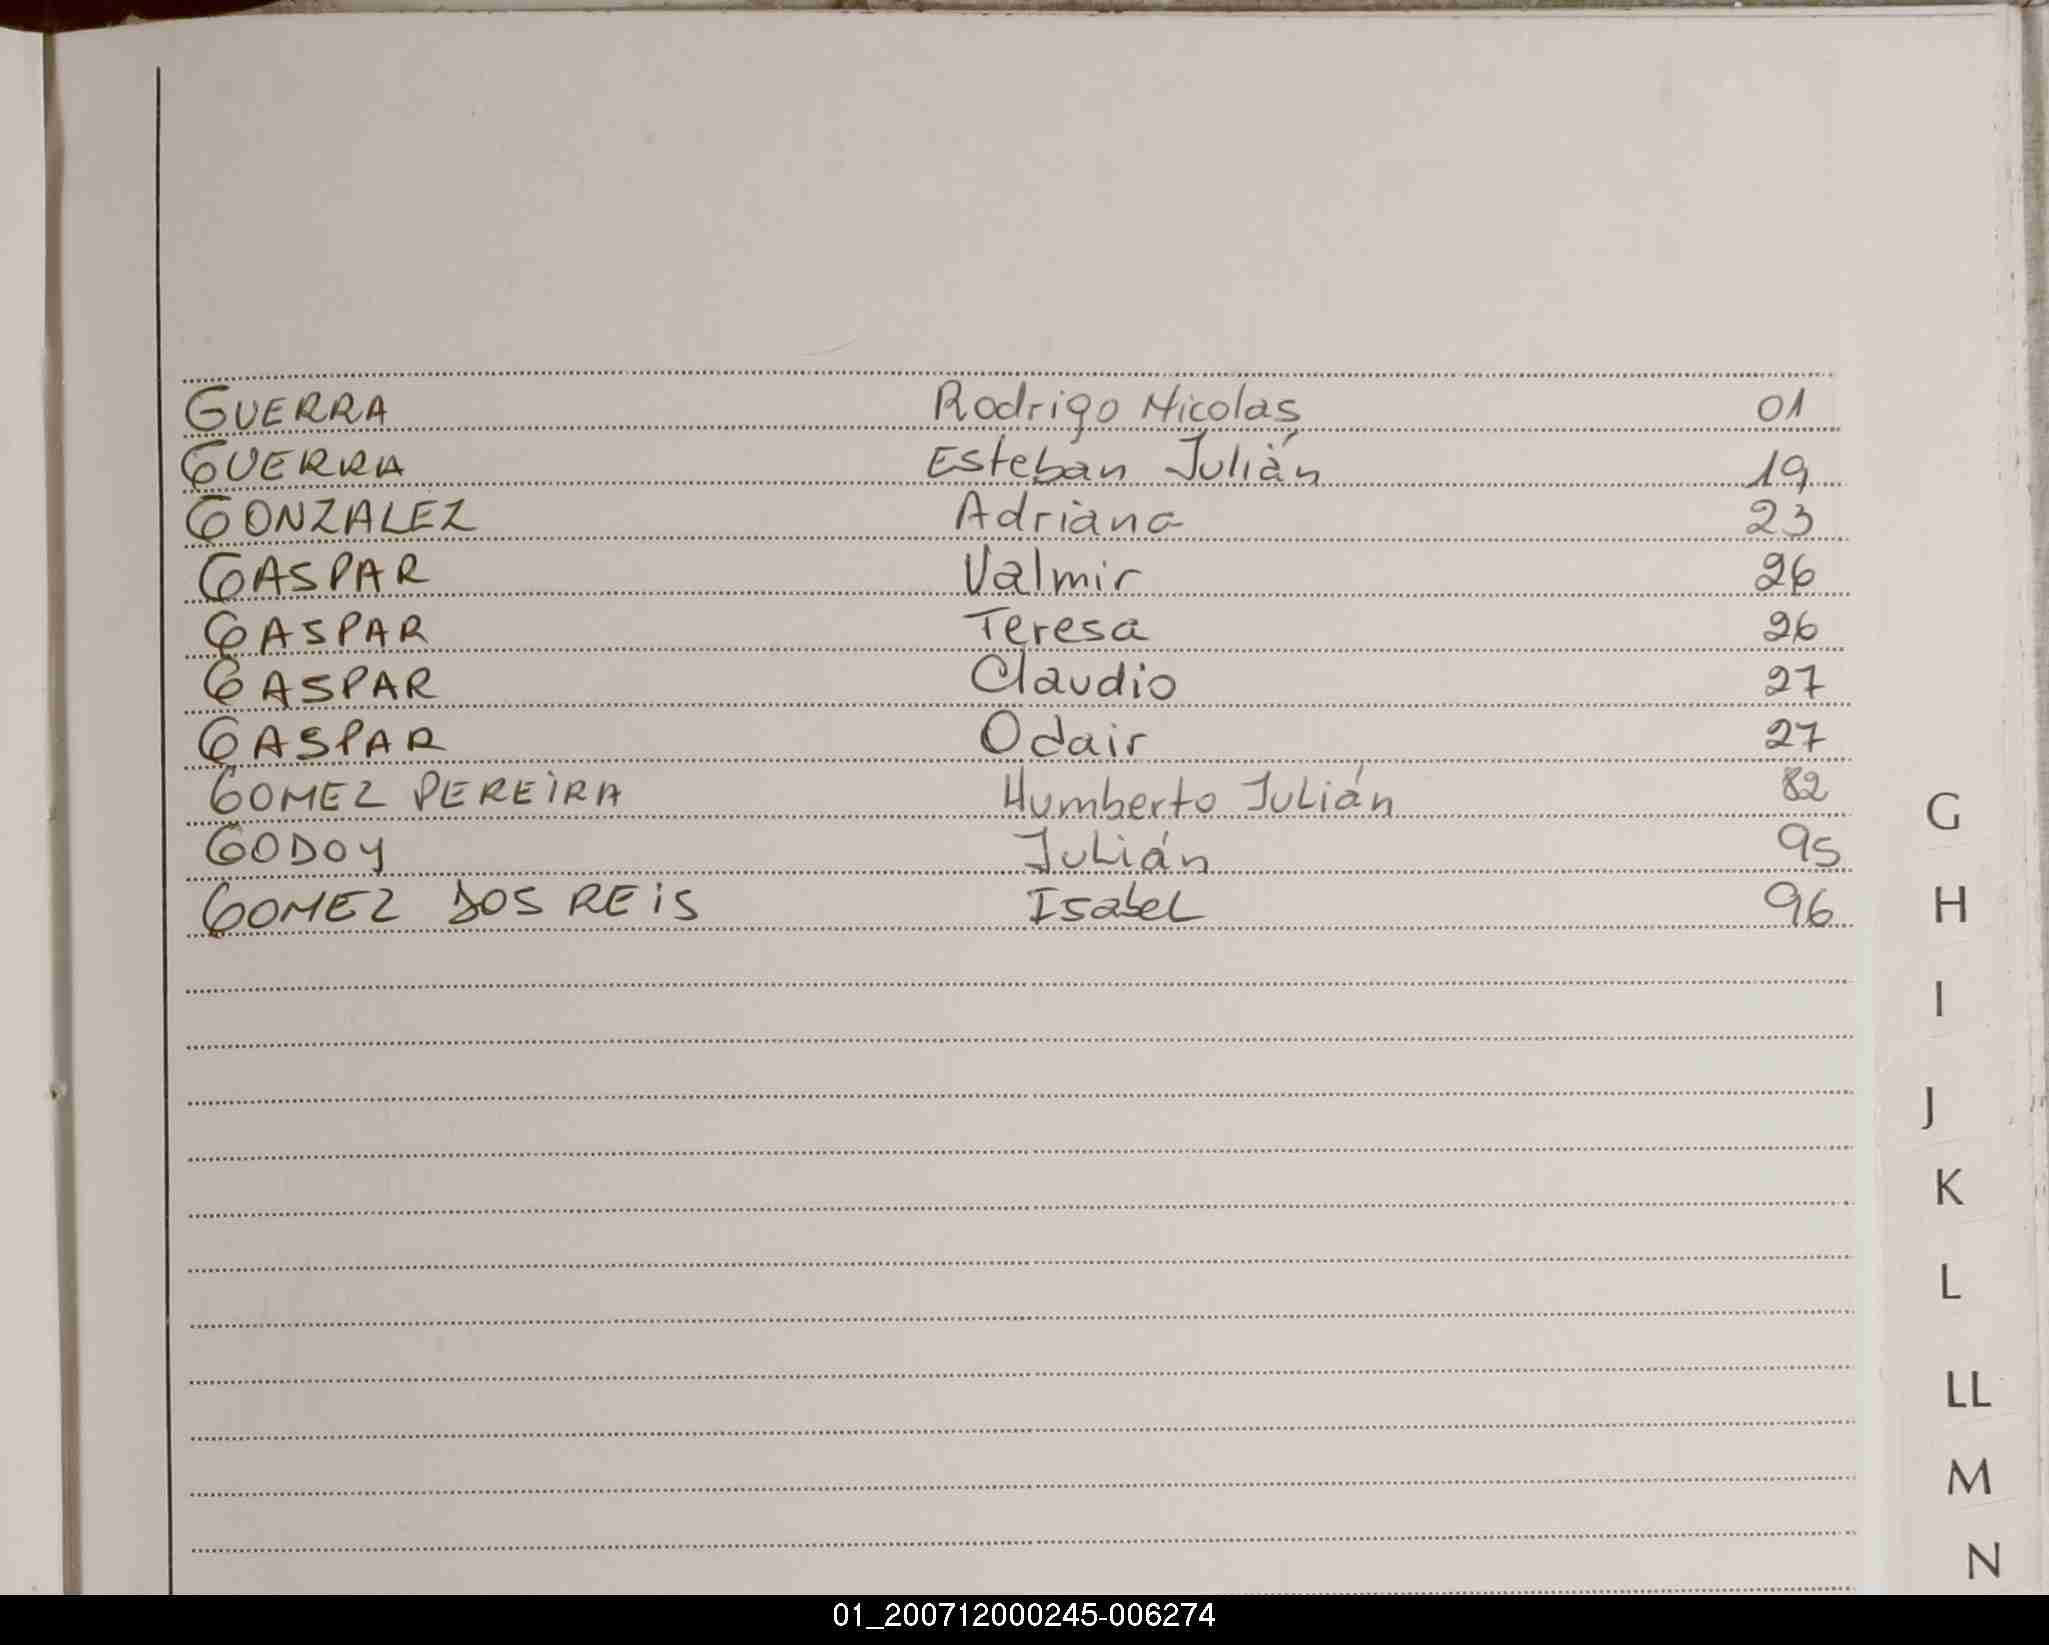 GUERRA Rodrigo Nicolas 01
GUERRA Esteban Julián 19
GONZALEZ Adriana 23
GASPAR Valmir 26
GASPAR Teresa 26
GASPAR Claudio 27
GASPAR Odair 27
GOMEZ PEREIRA Humberto Julián 82
GODOY Julián 95
GOMEZ DOS REIS Isabel 96
G
H
I
J
K
L
LL
M
N
01_200712000245-006274